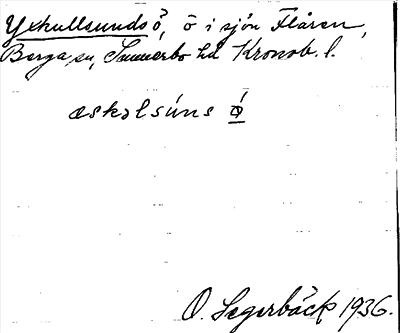 Yxkullsundsö, ö i sjön Flåren,
Berga sn, Sunnerbo hd Kronob. l.
æskəlsúns ǿ
O. Segerbäck 1936.